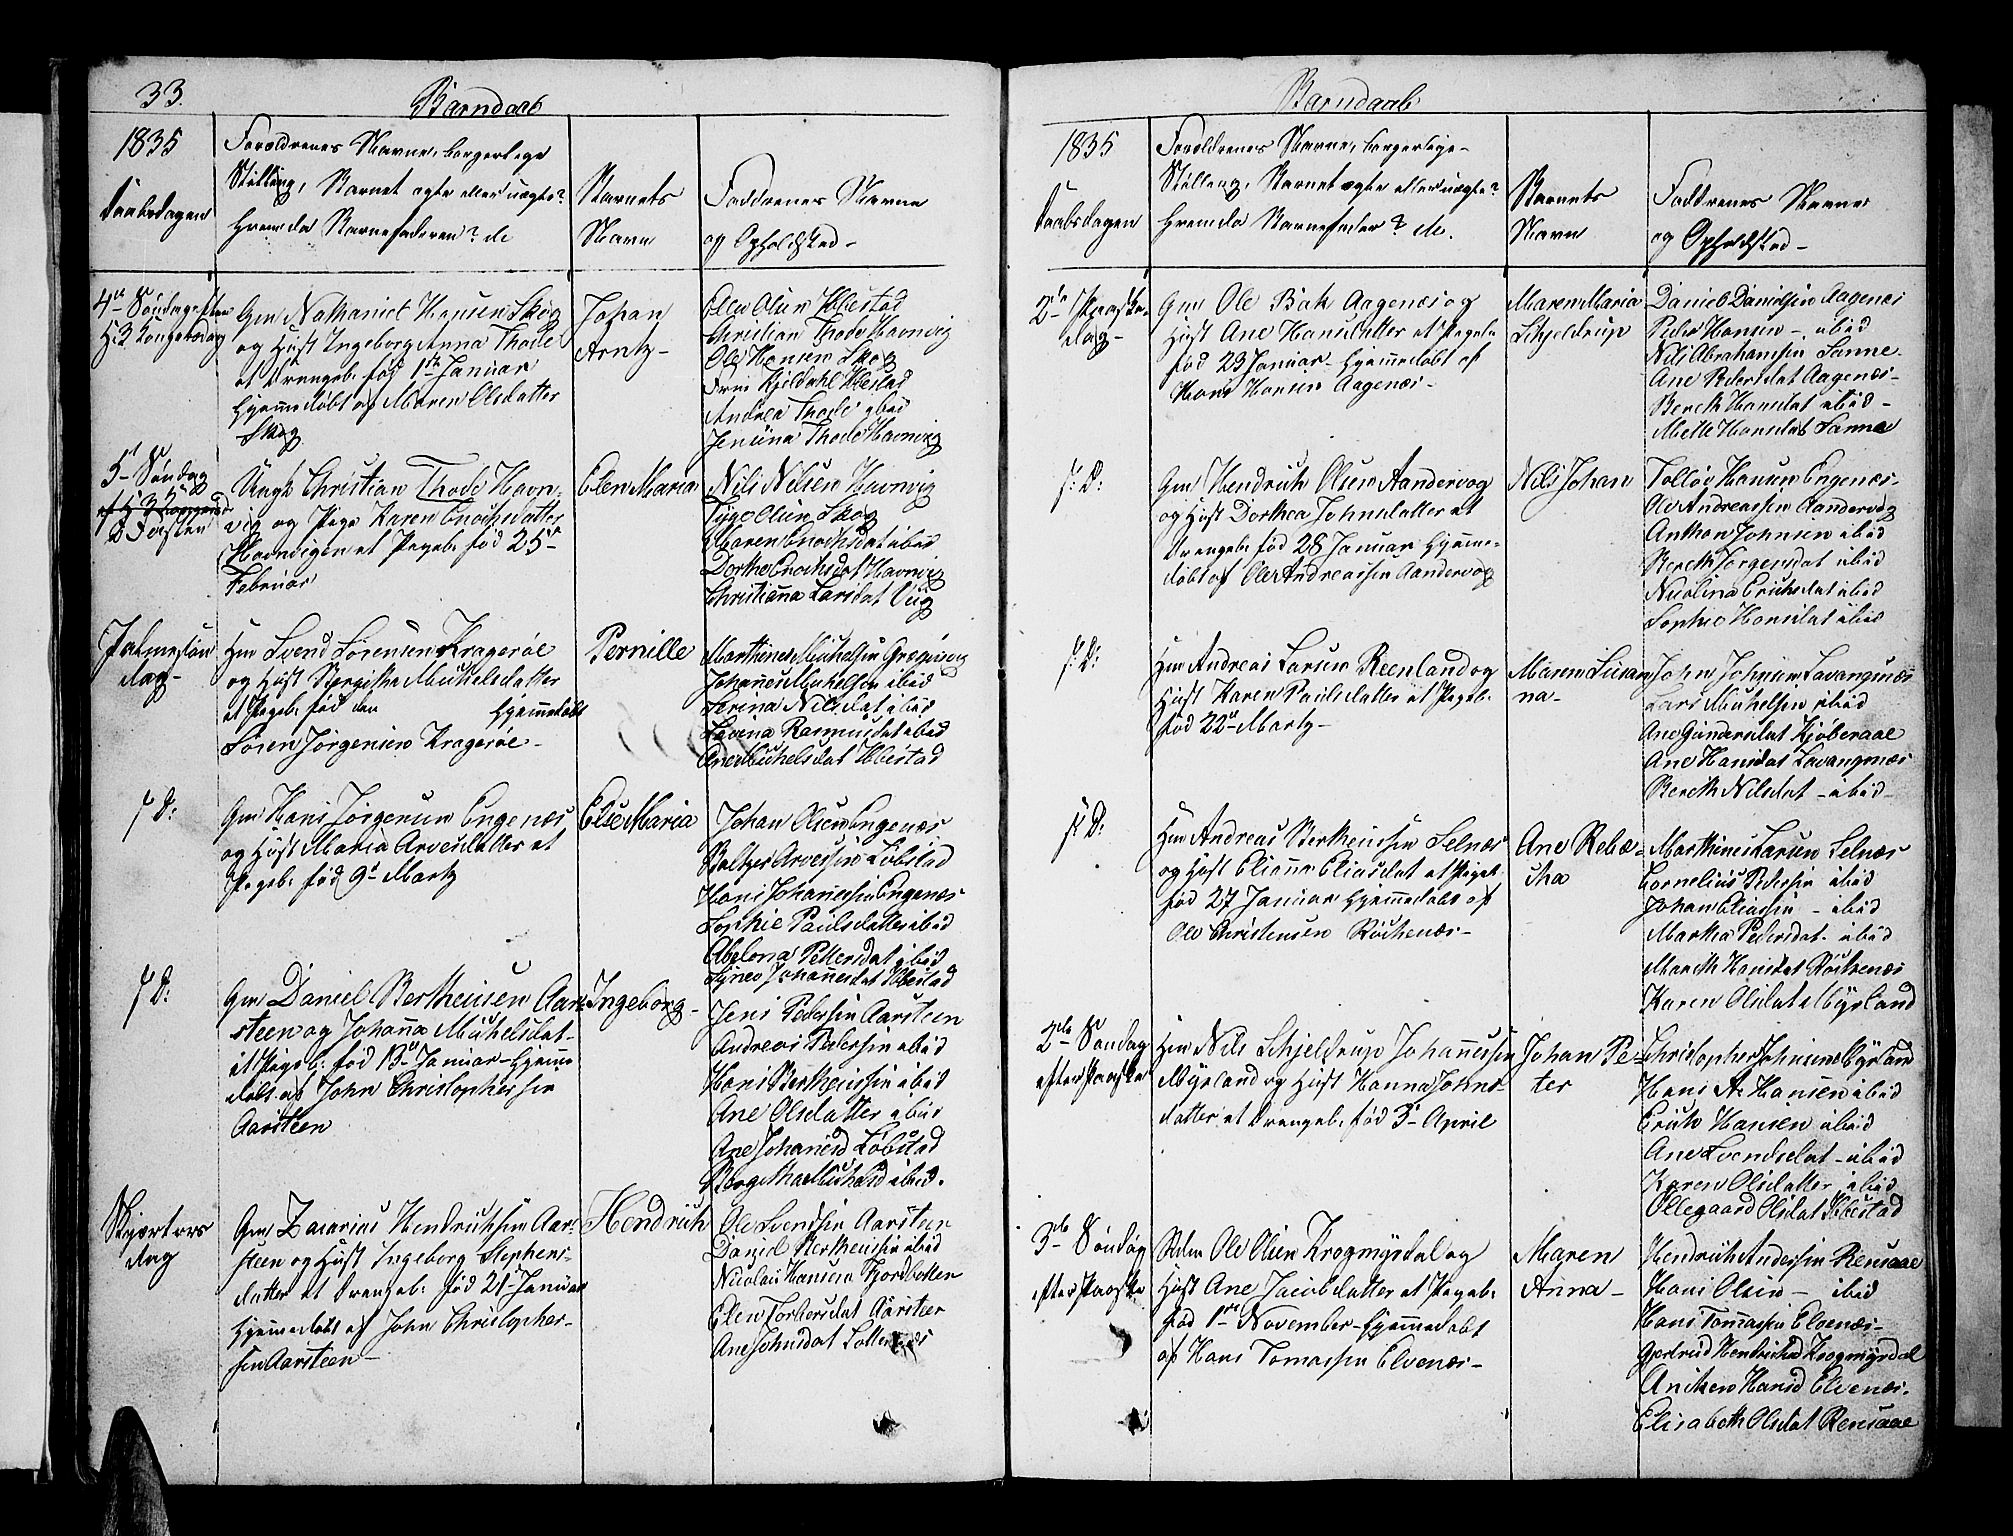 33.
Barndaab
1835
Daabsdagen
Forældrenes Navne, borgerlige
Stilling, Barnet ægte eller uægte?
Hvem da Barnefaderen? &c
Barnets
Navn
Faddrenes Navne
og Opholdsted -
4de Søndag efter
H: 3 Kongersdag
Gm Nathaniel Hansen Skog
og Hust Ingeborg Anna Thode
et Drengeb. fød 1ste Januar
hjemmedøbt af Maren Olsdatter
Skog
Johan
Arntz -
Elen Olsen Ibestad
Christian Thode Havnvig
Ole Hansen Skog
Kjeldahl Ibestad
Andrea Thode ibid
Jensina Thode Havnvig
5te Søndag
i Fasten
Ungk Christian Thode Havn-
vig og Pige Karen Enochsdatter
Havnvigen et Pigeb. fød 25de
Februar
Elen Maria
Nils Nilsen Havnvig
Tyge Olsen Skog
Maren Enochsdat ibid
Dorthe Enochsdat Havnvig
Christianna Larsdat Vig
Palmesøn
dag -
Hm Svend Sørensen Kragerøe
og Hust Bergitha Michelsdatter
et Pigeb. fød den hjemmedøbt
Søren Jørgensen Kragerøe -
Pernille
Marthines Michelsen
Johannes Michelsen ibid
Serina Nilsdat ibid
Lovina Rasmusdat ibid
Ane Michelsdat Ibestad
s: D:
Gm Hans Jørgensen Engenæs
og Hust Maria Arvesdatter et
Pigeb. fød 9de Martz
Else Maria
Johan Olsen Engenæs
Baltzer Arvesen Løbstad
Hans Johannesen Engenæs
Sophie Paulsdatter ibid
Abelona Pettersdat ibid
Synev Johannesdat Ibestad
s: D:
Gm Daniel Bertheusen Aar-
steen og Johanna Michelsdat-
et Pigeb. fød 13de Januar - hjemme
døbt af John Christophersen
Aarsteen
Ingeborg -
Jens Pedersen Aarsteen
Andreas Pedersen ibid
Hans Bertheussen ibid
Ane Olsdatter ibid
Ane Johannesd Løbstad
Bergitha Michelsd ibid.
Skjærtors
dag
Gm Zacarias Hendrichsen Aar-
steen og Hust Ingeborg Stephens-
datter et Drengeb. fød 21de Januar
hjemmedøbt af John Christopher-
sen Aarsteen -
Hendrich
Ole Svendsen Aarsteen
Daniel Berthenssen ibid
Nicolai Hansen Fjordbotten
Elen Torbersdat Aarsteen
Ane Johnsdat
Barndaab
1835
Daabsdagen
Forældrenes Navne, borgerlige-
Stilling, Barnet ægte eller uægte?
Hvem da Barnefader? &c.
Barnets
Navn
Faddrenes Navne
og Opholdsted -
2den Paaske-
dag -
Gm Ole Bak Aagenæs og
Hust Ane Hansdatter et Pigeb.
fød 23 Januar - hjemmedøbt af
Hans Hansen Aagenæs -
Maren Maria
Schjeldrup
Daniel Danielsen Aagenæs
Peder Hansen - ibid
Nils Abrahamsen Sanne
Ane Pedersdat Aagenæs -
Bereth Hansdat ibid -
Mette Hansdat Sanne
s: D:
Gm Hendrich Olsen Aandervog
og Hust Dorthea Johnsdatter et
Drengeb. fød 28 Januar hjemme-
døbt af Ole Andreassen Aandervog
Nils Johan
Tollev Hansen Engenæs -
Ole Andreassen Aandervog
Anthon Johnsen ibid
Bereth Jørgensdat ibid
Nicolina Erichsdat ibid
Sophie Hansdat ibid
s: D:
Hm Andreas Larsen Reenland og
Hust Karen Paulsdatter et Pigeb.
fød 22de Martz -
Maren Susan
na -
John Johnsen Lavangnæs
Lars Michelsen ibid
Ane Gunarsdat Kjøberaae
Ane Hansdat Lavangnæs
Bereth Nilsdat - ibid -
s: D:
Hm Andreas Bertheussen Selnæs
og Hust Elianna Eliasdat et Pigeb.
fød 27 Januar hjemmedøbt af
Ole Christensen Rochenæs -
Ane Rebæ-
cka
Marthines Larsen Selnæs
Cornelius Pedersen ibid
Johan Eliassen - ibid
Martha Pedersdat. ibid
Mareth Hansdat Rochenæs
Karen Olsdat Myrland
2den Søndag
efter Paaske
Hm Nils Schjeldrup Johannessen
Myrland og Hust Hanna Johns-
datter et Drengeb. fød 3de April
Johan Pe-
ter
Christopher Johnsen Myrland
Hans A. Hansen ibid
Erich Hansen ibid
Ane Svendsdat - ibid
Karen Olsdatter ibid
Ollegaard Olsdat Ibestad
3de Søndag
efter Paaske
Ole Olsen Krogmyrdal og
Hust Ane Jacobsdatter et Pigeb.
fød 1ste November - hjemmedøbt
af Hans Tomassen Elvenæs -
Maren
Anna -
Hendrich Andersen Rensaae
Hans Olsen - ibid
Hans Tomassen Elvenæs -
Gjertrud Hendrichsd Krogmyrdal
Anichen Hansd Elvenæs.
Elisabeth Olsdat Rensaae